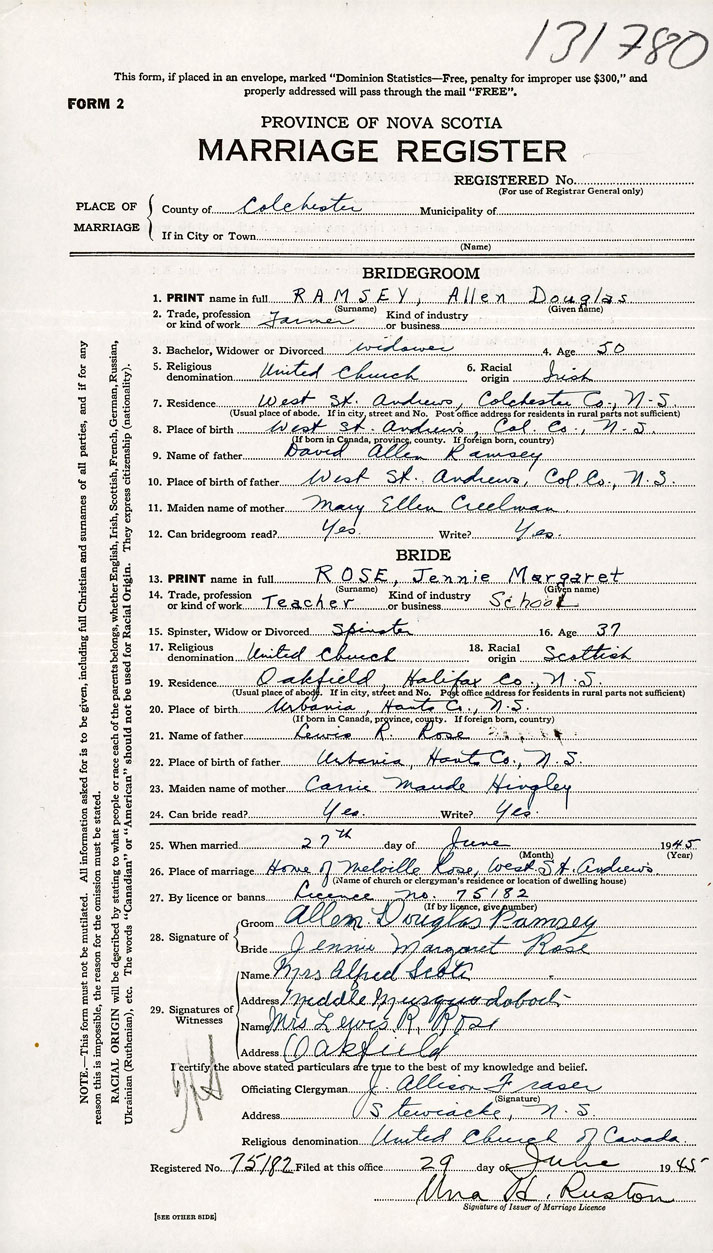 131780
This form, if placed in an envelope, marked "Dominion Statistics—Free, penalty for improper use $300," and
properly addressed will pass through the mail "FREE".
FORM 2
PROVINCE OF NOVA SCOTIA
MARRIAGE REGISTER
REGISTERED No.
(For use of Registrar General only)
PLACE OF MARRIAGE
County of Colchester Municipality of
If in City or Town
(Name)
BRIDEGROOM
1. PRINT name in full RAMSEY, Allen Douglas
(Surname) (Given name)
2. Trade, profession or kind of work Farmer Kind of industry or business
3. Bachelor, Widower or Divorced widower 4. Age 50
5. Religious denomination United Church 6. Racial origin Irish
7. Residence West St. Andrews, Colchester Co., N.S.
(Usual place of abode. If in city, street and No. Post office address for residents in rural parts not sufficient)
8. Place of birth West St. Andrews, Col. Co., N.S.
(If born in Canada, province, county. If foreign born, country)
9. Name of father David Allen Ramsey
10. Place of birth of father West St. Andrews, Col. Co., N.S.
11. Maiden name of mother Mary Ellen Creelman
12. Can bridegroom read? Yes. Write? Yes.
BRIDE
13. PRINT name in full ROSE, Jennie Margaret
(Surname) (Given name)
14. Trade, profession or kind of work Teacher Kind of industry or business School
15. Spinster, Widow or Divorced Spinster 16. Age 37
17. Religious denomination United Church 18. Racial origin Scottish
19. Residence Oakfield, Halifax Co., N.S.
(Usual place of abode. If in city, street and No. Post office address for residents in rural parts not sufficient)
20. Place of birth Urbania, Hants Co., N.S.
(If born in Canada, province, county. If foreign born, country)
21. Name of father Lewis R. Rose
22. Place of birth of father Urbania, Hants Co., N.S.
23. Maiden name of mother Carrie Maude Hingley
24. Can bride read? Yes. Write? Yes.
25. When married 27th day of June 1945
(Month) (Year)
26. Place of marriage Home of Melville Rose, West St. Andrews
(Name of church or clergyman's residence or location of dwelling house)
27. By licence or banns Licence no. 75182
(If by licence, give number)
28. Signature of
Groom Allen Douglas Ramsey
Bride Jennie Margaret Rose
29. Signatures of Witnesses
Name Mrs Alfred Scott
Address Middle Musquodoboit
Name Mrs Lewis R. Rose
Address Oakfield
I certify the above stated particulars are true to the best of my knowledge and belief.
Officiating Clergyman J. Allison Fraser
(Signature)
Address Stewiacke, N.S.
Religious denomination United Church of Canada
Registered No. 75182 Filed at this office 29 day of June 1945
Una H. Ruston
Signature of Issuer of Marriage Licence
[SEE OTHER SIDE]
NOTE.—This form must not be mutilated. All information asked for is to be given, including full Christian and surnames of all parties, and if for any
reason this is impossible, the reason for the omission must be stated.
RACIAL ORIGIN will be described by stating to what people or race each of the parents belongs, whether English, Irish, Scottish, French, German, Russian,
Ukrainian (Ruthenian), etc. The words "Canadian" or "American" should not be used for Racial Origin. They express citizenship (nationality).